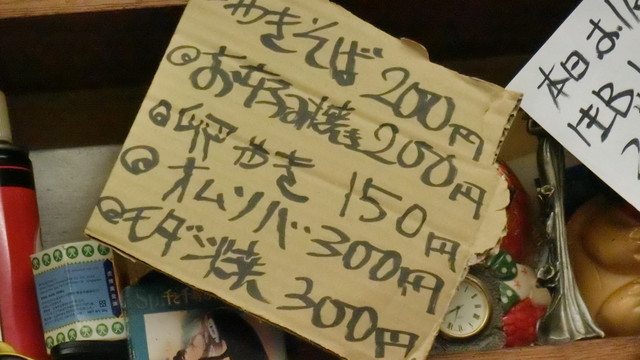 やきそば 200円
◎お好み焼き 200円
◎卵やき 150円
◎オムソバ 300円
◎モダン焼 300円
本日お